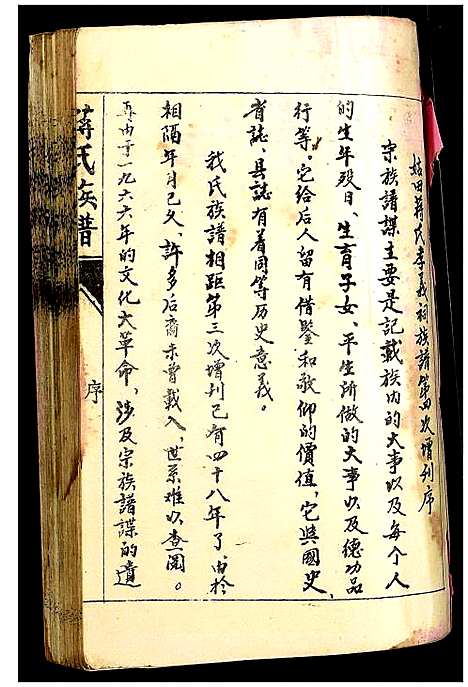 姑田蒋氏孝義祠族譜第四次增刋序
宗族譜諜主要是記載族内的大事以及每个人
的生年殁日、生育子女、平生所做的大事以及德功品
行等。它给后人留有借鑒和敬仰的價值，它與國史、
省誌、县誌有着同等历史意義。
我氏族譜相距第三次增刋已有四十八年了，由於
相隔年月已久，許多后裔未曾載入，世系难以查阅。
再由于一九六六年的文化大革命，涉及宗族譜諜的遺
蒋氏族譜
序